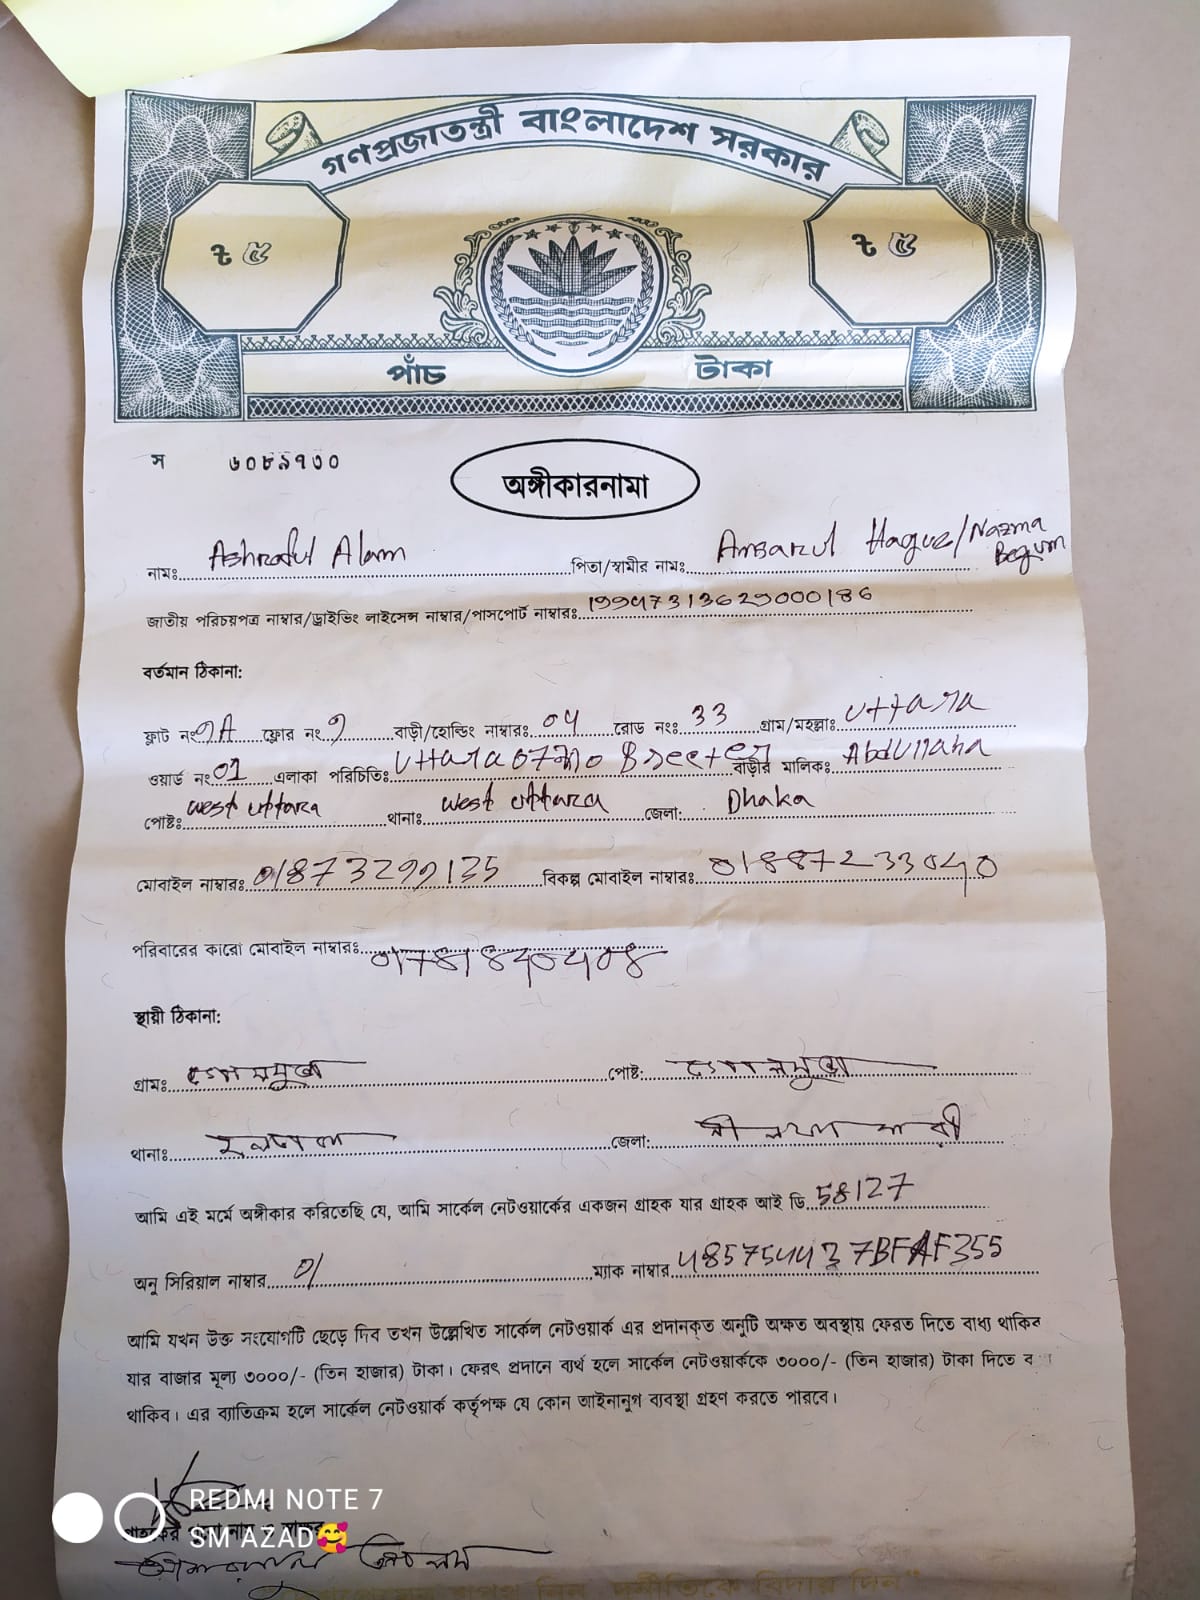 গণপ্রজাতন্ত্রী বাংলাদেশ সরকার
ট ৫ ট ৫
পাঁচ টাকা
স ৬০৮৯৭৩০
অঙ্গীকারনামা
নামঃ Ashraful Alam পিতা/স্বামীর নামঃ Ansarul Haque/Nazma Begum
জাতীয় পরিচয়পত্র নাম্বার/ড্রাইভিং লাইসেন্স নাম্বার/পাসপোর্ট নাম্বারঃ 19947313629000186
বর্তমান ঠিকানা:
ফ্লাট নং 7A ফ্লোর নং 7 বাড়ী/হোল্ডিং নাম্বারঃ 04 রোড নংঃ 33 গ্রাম/মহল্লাঃ Uttara
ওয়ার্ড নং 01 এলাকা পরিচিতিঃ Uttara বাড়ীর মালিকঃ Abdullaha
পোষ্টঃ West Uttara থানাঃ West Uttara জেলা: Dhaka
মোবাইল নাম্বারঃ 01873299135 বিকল্প মোবাইল নাম্বারঃ 01887233040
পরিবারের কারো মোবাইল নাম্বারঃ 01781840408
স্থায়ী ঠিকানা:
গ্রামঃ গোলমুন্ডা পোষ্ট: গোলমুন্ডা
থানাঃ জলঢাকা জেলা: নীলফামারী
আমি এই মর্মে অঙ্গীকার করিতেছি যে, আমি সার্কেল নেটওয়ার্কের একজন গ্রাহক যার গ্রাহক আই ডি 58127
অনু সিরিয়াল নাম্বার 01 ম্যাক নাম্বার 485754437BFAF355
আমি যখন উক্ত সংযোগটি ছেড়ে দিব তখন উল্লেখিত সার্কেল নেটওয়ার্ক এর প্রদানকৃত অনুটি অক্ষত অবস্থায় ফেরত দিতে বাধ্য থাকিব
যার বাজার মূল্য ৩০০০/- (তিন হাজার) টাকা। ফেরৎ প্রদানে ব্যর্থ হলে সার্কেল নেটওয়ার্ককে ৩০০০/- (তিন হাজার) টাকা দিতে
থাকিব। এর ব্যাতিক্রম হলে সার্কেল নেটওয়ার্ক কর্তৃপক্ষ যে কোন আইনানুগ ব্যবস্থা গ্রহণ করতে পারবে।
REDMI NOTE 7
SM AZAD🥰